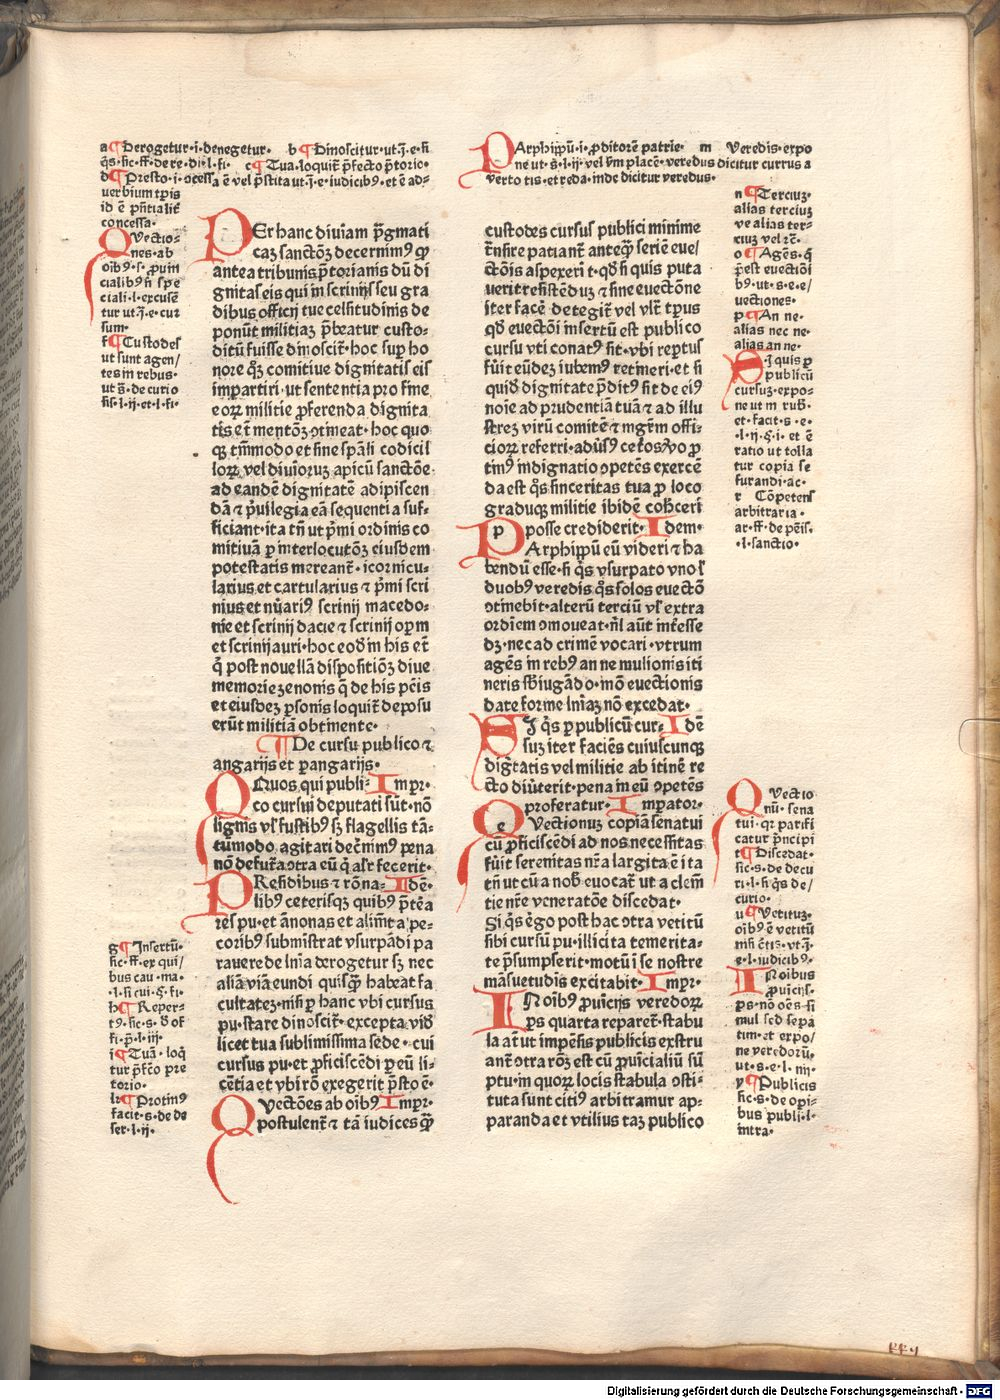 a¶Derogetur·i·denegetur· b¶Dinoscitur·ut·j̄·e·si
q̄s·sic·ff·de re·di·l·fi· c¶Tua·loquit̄ p̄fecto p̄torio·
d¶Presto·i·ↄcessa ē vel p̄stita ut·j̄·e·iudicibꝰ·et ē ad-
verbium tp̄is
id ē p̄ntialit̄
concessa·
Quectio-
nes·ab
oībꝰ·s·ꝓuin
cialibꝰ n̄ spe
ciali·l·excusē
tur ut·j̄·e·cur
sum·
f¶Custodes
ut sunt agen/
tes in rebus·
ut s̄·de curio
sis·l·ij·et·l·fi·
PEr hanc diuīam p̄gmati
caꝫ sanctōꝫ decernimꝰ ꝙ
antea tribunis p̄torianis dū di
gnitas eis qui in scrinijs seu gra
dibus officij tue celsitudinis de
ponūt militiaꝫ p̄beatur custo-
ditū fuisse dinoscit̄·hoc suꝑ ho
nore qꝫ comitiue dignitatis eis
impartiri·ut sententia pro fine
eoꝝ militie ꝓferenda dignita
tis et̄ mentōꝫ ↄtineat·hoc quo
qꝫ tm̄modo et sine spāli codicil
loꝝ vel diuīoruꝫ apicū sanctōe
ad eandē dignitatē adipiscen
dā ⁊ p̄uilegia ea sequentia suf-
ficiant·ita tn̄ ut p̄mi ordinis co
mitiuā ꝑ interlocutōꝫ eiusdem
potestatis mereant̄·i cornicu-
larius et cartularius ⁊ p̄mi scri
nius et nūariꝰ scrinij macedo-
nie et scrinij dacie ⁊ scrinij opꝝ
et scrinij auri·hoc eod̄ in his et̄
q̄ post nouellā dispositiōꝫ diue
memorie zenonis q̄ de his p̄cis
et eiusdeꝫ ꝑsonis loquit̄ deposu
erūt militiā obtinente·
¶De cursu publico ⁊
angarijs et parangarijs·
QUos qui publi- Impr·
co cursui deputati sūt·nō
lignis vl̓ fustibꝰ sꝫ flagellis tā-
tūmodo agitari decn̄imꝰ pena
nō defut̄a ↄtra eū q̄ alr̄ fecerit·
PResidibus ⁊ rōna- Idē·
libꝰ ceterisqꝫ quibꝰ p̄tēa
rēs pu·et ānonas et alim̄ta pe-
coribꝰ submistrat vsurpādi pa
rauere de ln̄ia derogetur sꝫ nec
aliā viā eundi quisqꝫ habeat fa
cultateꝫ·nisi ꝑ hanc vbi cursus
pu·stare dinoscit̄·excepta vid̄
licet tua sublimissima sede·cui
cursus pu·et ꝓficiscēdi ꝑ eū li-
cētia et ybi rō exegerit p̄sto ē·
Quectōes ab oibꝰ Impr·
postulent̄ ⁊ tā iudices qꝫ
g¶Insertū·
sic·ff·ex qui/
bus cau·ma·
·l·si cui·§·fi·
h¶Reper-
tꝰ·sic·s·d̄ of
fi·p̄·l·iij·
i¶Tuā·loq̄
tur p̄fc̄o pre
torio·
k¶Protinꝰ
facit·s·de de
ser·l·ij·
PArphippū·i·ꝓditorē patrie· m Veredis·expo
ne ut·s·l·ij·vel fm̄ placē·veredus dicitur currus a
verto tis·et reda·inde dicitur veredus·
custodes cursus publici minime
trn̄sire patiant̄ anteqꝫ seriē eue/
ctōis aspexerīt·qd̄ si quis puta
uerit resistēduꝫ ⁊ sine euectōne
iter facē detegit̄ vel vlt̄ tp̄us
qd̄ euectōi insertū est publico
cursu vti conatꝰ sit·vbi repertus
fūit eūdeꝫ iubemꝰ retineri·et si
quid̄ dignitate p̄ditꝰ sit de eiꝰ
noīe ad prudentiā tuā ⁊ ad illu
streꝫ virū comitē ⁊ mgr̄m offi-
cioꝝ referri·aduersꝰ cet̓os ꝟo ꝓ
tinꝰ indignatio ↄpetēs exercē
da est q̄s sinceritas tua ꝓ loco
graduqꝫ militie ibidē cohꝰceri
posse crediderit· Idem·
PArphippū eū videri ⁊ ha
bendū esse·si q̄s vsurpato vno l̓
duobꝰ veredis q̄s solos euectō
ↄtinebit·alterū terciū vl̓ extra
ordiēm ↄmoueat·n̄l aūt int̄esse
dꝫ·nec ad crimē vocari·vtrum
agēs in rebꝰ an ne mulionis iti
neris sb̄iugādo·mō euectionis
date forme ln̄iaꝫ nō excedat·
SI q̄s ꝑ publicū cur- Idē
suꝫ iter faciēs cuiuscunqꝫ
digt̄atis vel militie ab itinē re
cto diūterit·pena in eū ↄpetēs
proferatur· Imperator·
EVectionuꝫ copiā senatui
cū ꝓficiscēdi ad nos necessitas
fūit serenitas nr̄a largita ē ita
tn̄ ut cū a nob̄ euocat̄ ut a clem̄
tie nr̄e veneratōe discedat·
Si q̄s ergo post hac ↄtra vetitū
sibi cursū pu·illicita temerita-
te p̄sumpserit·motū ī se nostre
mā̄suetudis excitabit· Impr·
INoibꝰ ꝓuīcijs veredoꝝ
ꝑs quarta reparet̄·stabu
la aūt impēsis publicis exstru
ant̄ ↄtra rōꝫ est cū ꝓuīcialiū sū
ptu·in quoꝝ locis stabula ↄsti-
tuta sunt citiꝰ arbitramur ap-
paranda et vtilius taꝫ publico
n¶Terciuꝫ·
alias terciuꝫ
ve alias ter-
ciuꝫ vel rē·
o¶Agēs·q̄
p̄est euectiōi
bꝰ·ut·s·e·e/
uectiones·
p¶An ne·
alias nec ne·
alias an ne·
SIquis ꝑ
publicū
cursuꝫ·expo-
ne ut in rub̄·
et·facit·s·e·
·l·ij·§·i·et ē
ratio ut tolla
tur copia se
furandi·ac·
r Cōpetens
arbitraria·
ar·ff·de pēis·
·l·sanctio·
Quectio
nū·sena
tui·qr parifi
catur p̄ncipi
t¶Discedat·
sic·s·de decu
ri·l·si q̄s de/
curio·
u¶Vetituꝫ·
oibꝰ ē vetitū
nisi c̄tis·vt·j̄·
e·l·iudicibꝰ·
INoibus
ꝓuīcijs·
ꝑs·nō oēs·si
mul sed sepa
tim·et expo/
ne veredorū·
ut·s·e·l·iiij·
y¶Publicis
sic·s·de opi-
bus publi·l·
intra·
FF4
Digitalisierung gefördert durch die Deutsche Forschungsgemeinschaft - DFG